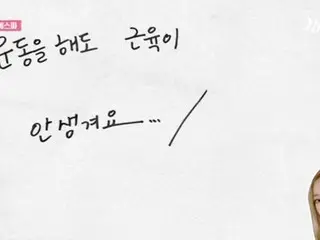 에스파
운동을 해도 근육이
안생겨요... /